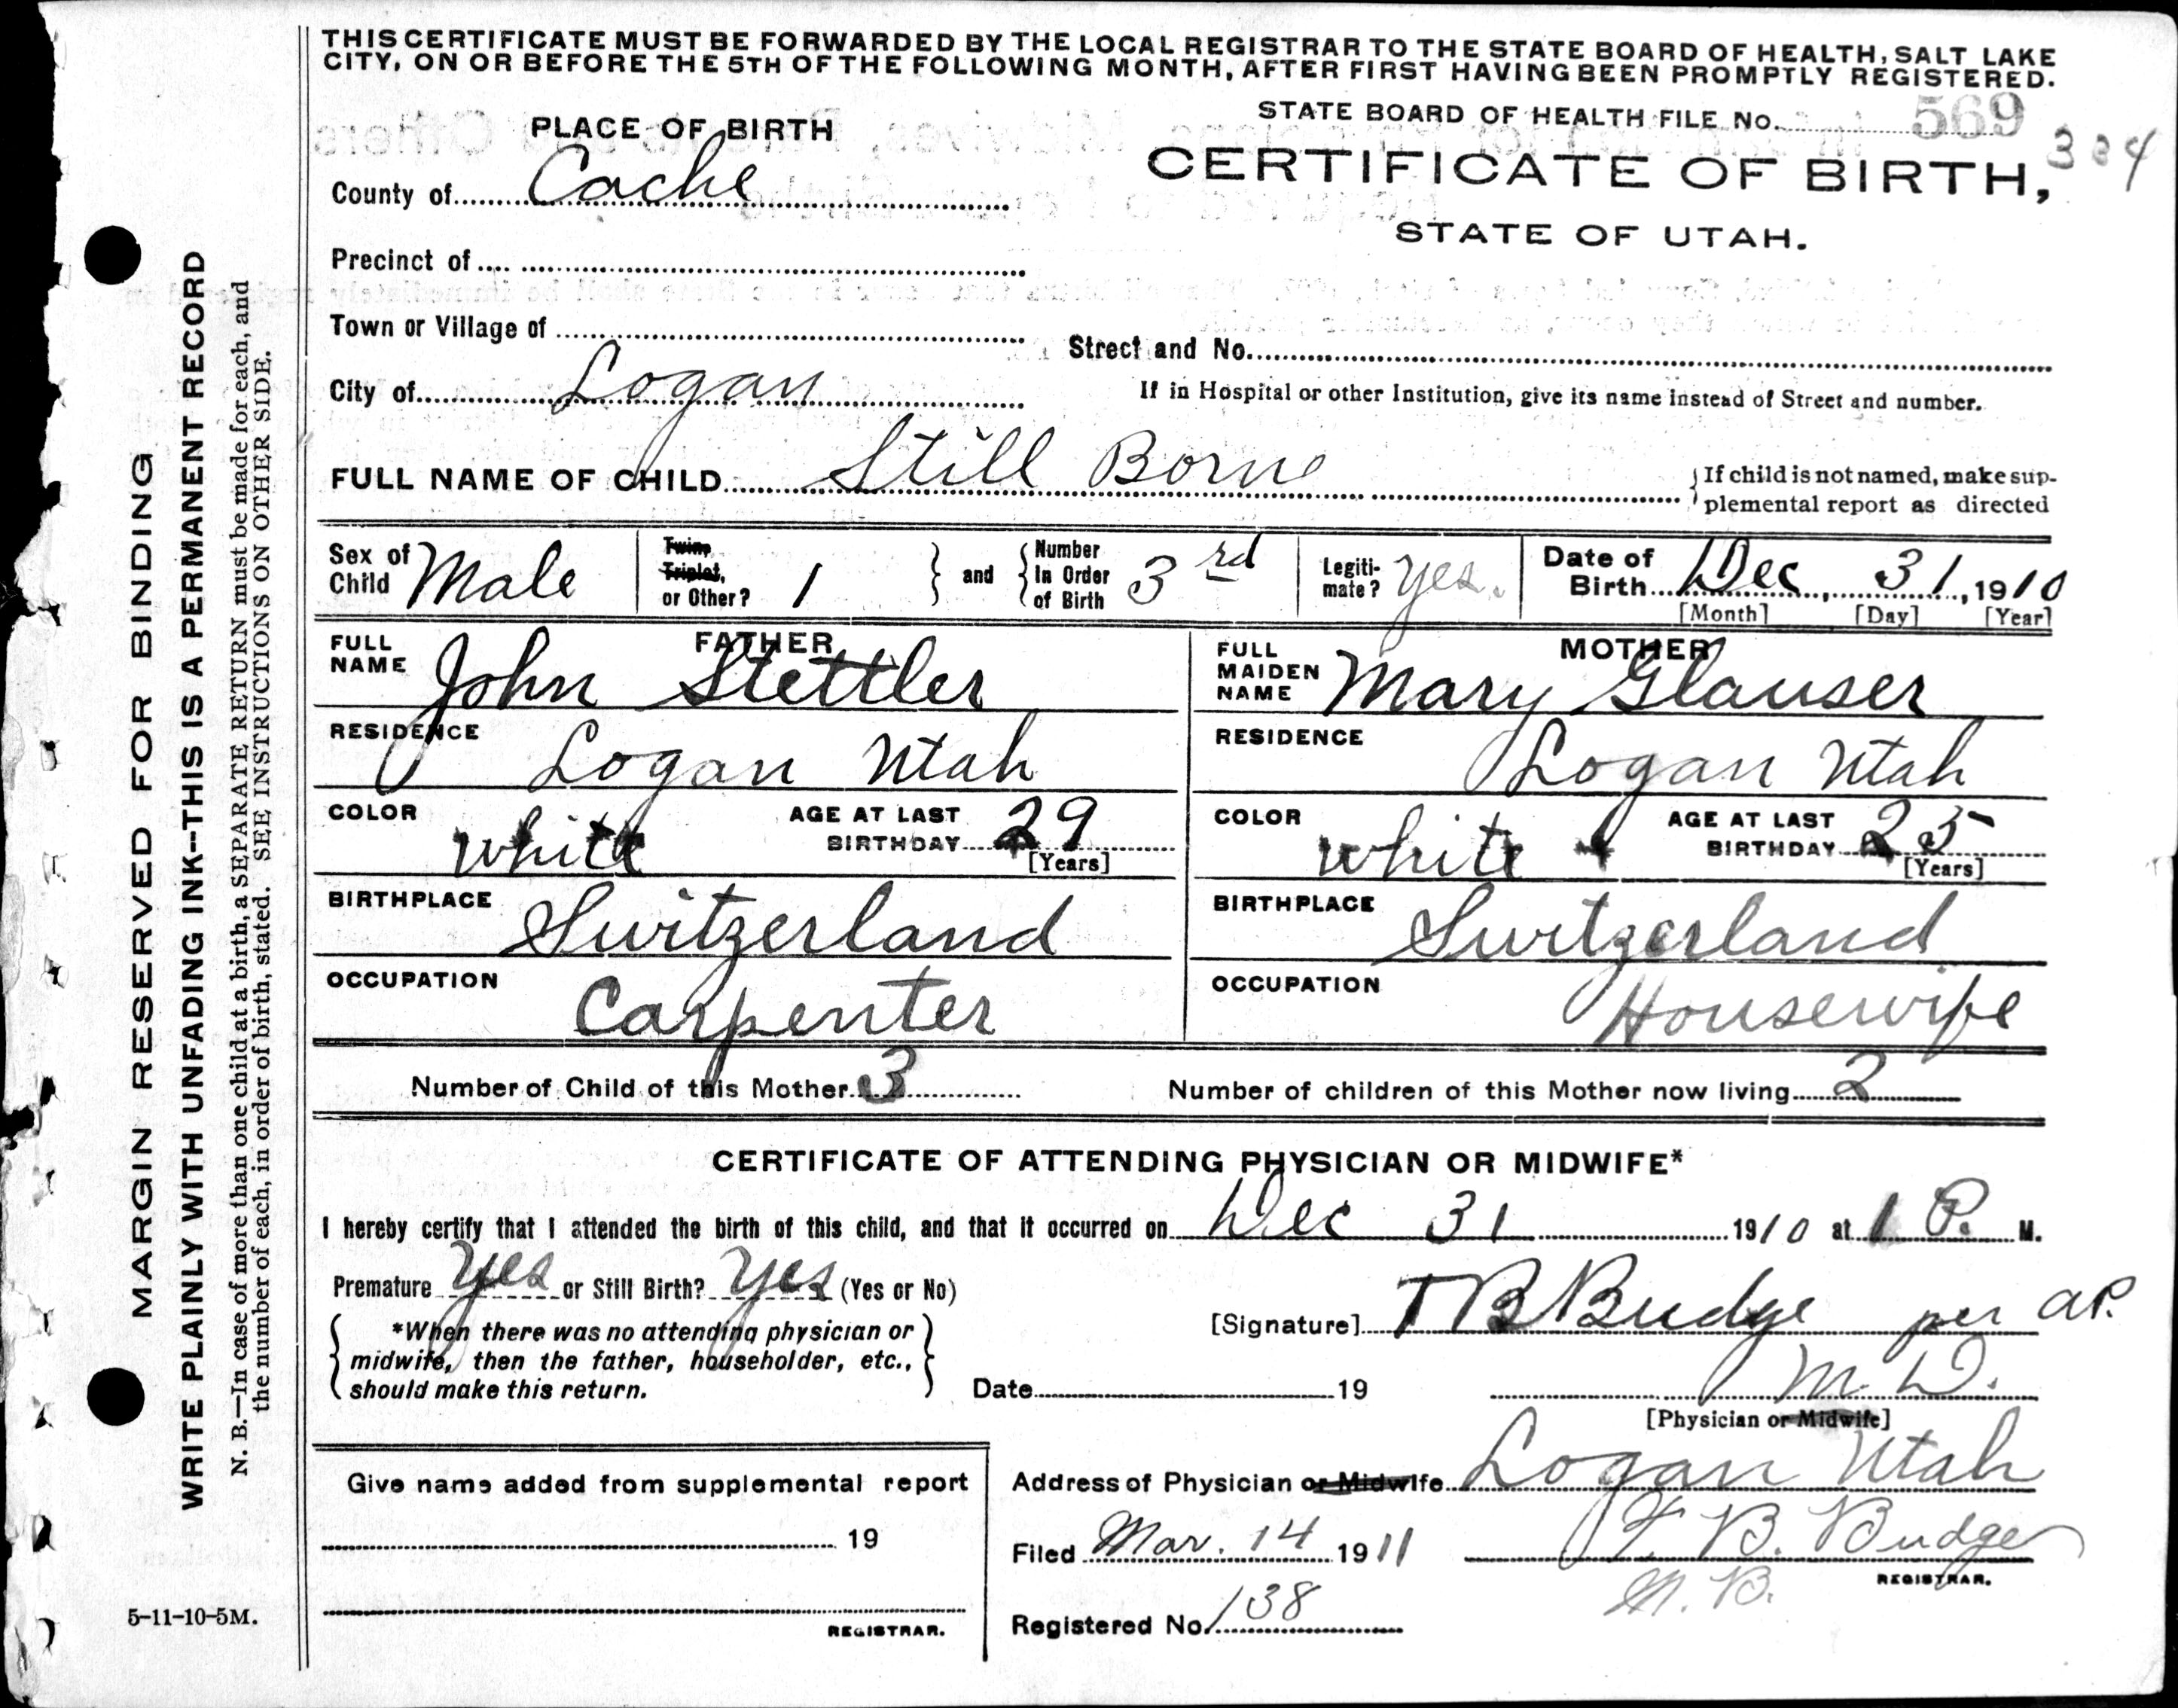 THIS CERTIFICATE MUST BE FORWARDED BY THE LOCAL REGISTRAR TO THE STATE BOARD OF HEALTH, SALT LAKE
CITY, ON OR BEFORE THE 5TH OF THE FOLLOWING MONTH, AFTER FIRST HAVING BEEN PROMPTLY REGISTERED.
PLACE OF BIRTH
STATE BOARD OF HEALTH FILE No. 569
CERTIFICATE OF BIRTH,
STATE OF UTAH.
County of Cache
Precinct of
Town or Village of
Street and No.
City of Logan
If in Hospital or other Institution, give its name instead of Street and number.
FULL NAME OF CHILD Still Born
If child is not named, make sup-
plemental report as directed
Sex of Child Male
Twin, Triplet, or Other? 1
and
Number In Order of Birth 3rd
Legiti-mate? Yes.
Date of Birth Dec, 31, 1910
[Month] [Day] [Year]
FATHER
FULL NAME John Stettler
MOTHER
FULL MAIDEN NAME Mary Glauser
RESIDENCE Logan Utah
RESIDENCE Logan Utah
COLOR white AGE AT LAST BIRTHDAY 29 [Years]
COLOR white AGE AT LAST BIRTHDAY 25 [Years]
BIRTHPLACE Switzerland
BIRTHPLACE Switzerland
OCCUPATION Carpenter
OCCUPATION Housewife
Number of Child of this Mother 3
Number of children of this Mother now living 2
CERTIFICATE OF ATTENDING PHYSICIAN OR MIDWIFE*
I hereby certify that I attended the birth of this child, and that it occurred on Dec 31 1910 at 1 P. M.
Premature Yes or Still Birth? Yes (Yes or No)
*When there was no attending physician or
midwife, then the father, householder, etc.,
should make this return.
[Signature] T B Budge per A P.
Date 19
M. D.
[Physician or Midwife]
Address of Physician or Midwife Logan Utah
Give name added from supplemental report
19
REGISTRAR.
Filed Mar. 14 1911
T. B. Budge
REGISTRAR.
Registered No. 138
MARGIN RESERVED FOR BINDING
WRITE PLAINLY WITH UNFADING INK--THIS IS A PERMANENT RECORD
N. B.—In case of more than one child at a birth, a SEPARATE RETURN must be made for each, and
the number of each, in order of birth, stated. SEE INSTRUCTIONS ON OTHER SIDE.
5-11-10-5M.